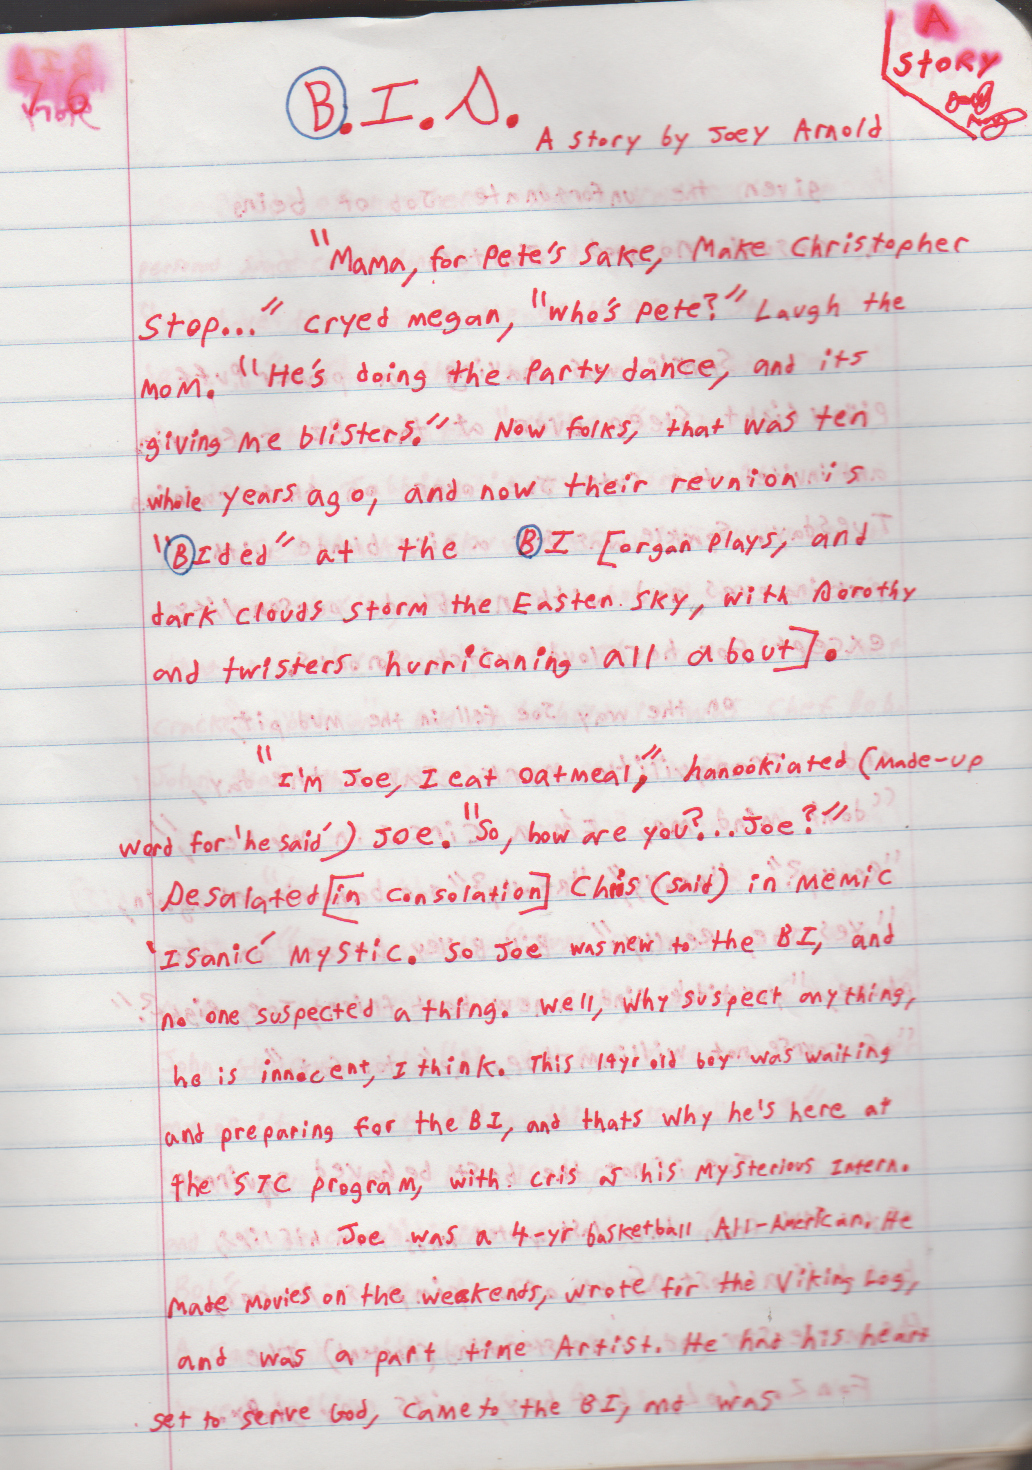 A
Story
B.I.S.
A story by Joey Arnold
"Mama, for Pete's Sake, Make Christopher
Stop..." cryed megan, "Who's Pete?" Laugh the
MOM. "He's doing the Party dance, and its
giving me blisters." Now folks, that was ten
whole years ago, and now their reunion is
"BIded" at the BI [organ plays, and
dark clouds storm the Easten sky, with Dorothy
and twisters hurricaning all about].
"I'm Joe, I eat oatmeal," hanookiated (Made-up
word for 'he said') Joe. "So, how are you?...Joe?"
Desalated [in consolation] Chris (said) in Memic
'Isanic' Mystic. So Joe was new to the BI, and
no one suspected a thing. Well, why suspect anything,
he is innocent, I think. This 19yr old boy was waiting
and preparing for the BI, and thats why he's here at
the STC program, with Cris as his Mysterious Intern.
Joe was a 4-yr basketball All-American. He
Made Movies on the weekends, wrote for the Viking Log,
and was (a part) time Artist. He had his heart
set to serve God, came to the BI, and was